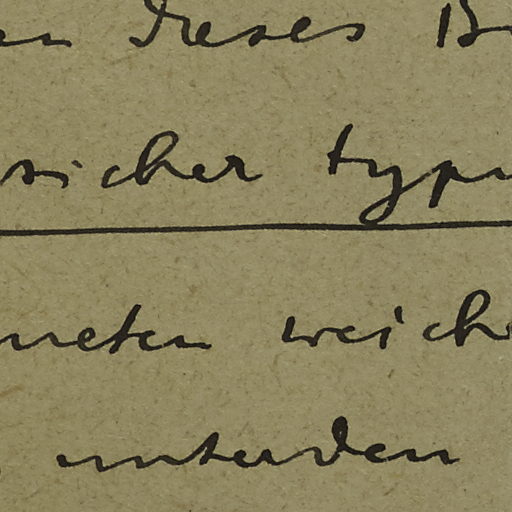 en dieses B
sicher typi
neten weich
unter den